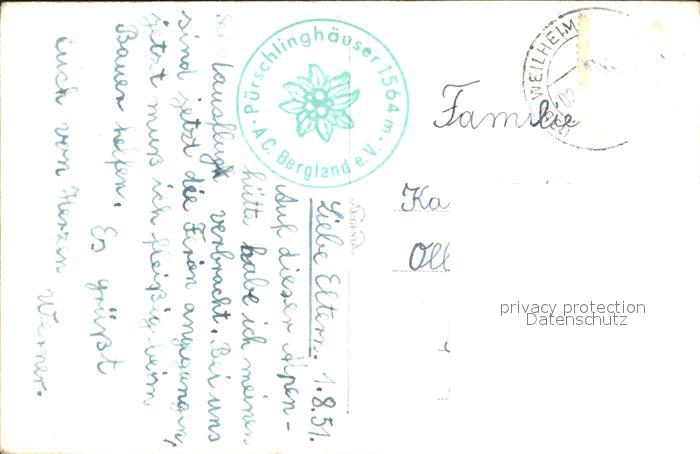 Pürschlinghäuser 1564 m
• A.C. Bergland e.V. •
WEILHEIM
Familie
Ka
Oll
ARGENTA
privacy protection
Datenschutz
Liebe Eltern. 1.8.51.
Auf dieser Alpen-
hütte habe ich meinen
ausflug verbracht. Bei uns
sind jetzt die Ferien angegangen,
jetzt muß ich fleißig beim
Bauer helfen. Es grüßt
euch von Herzen Werner.